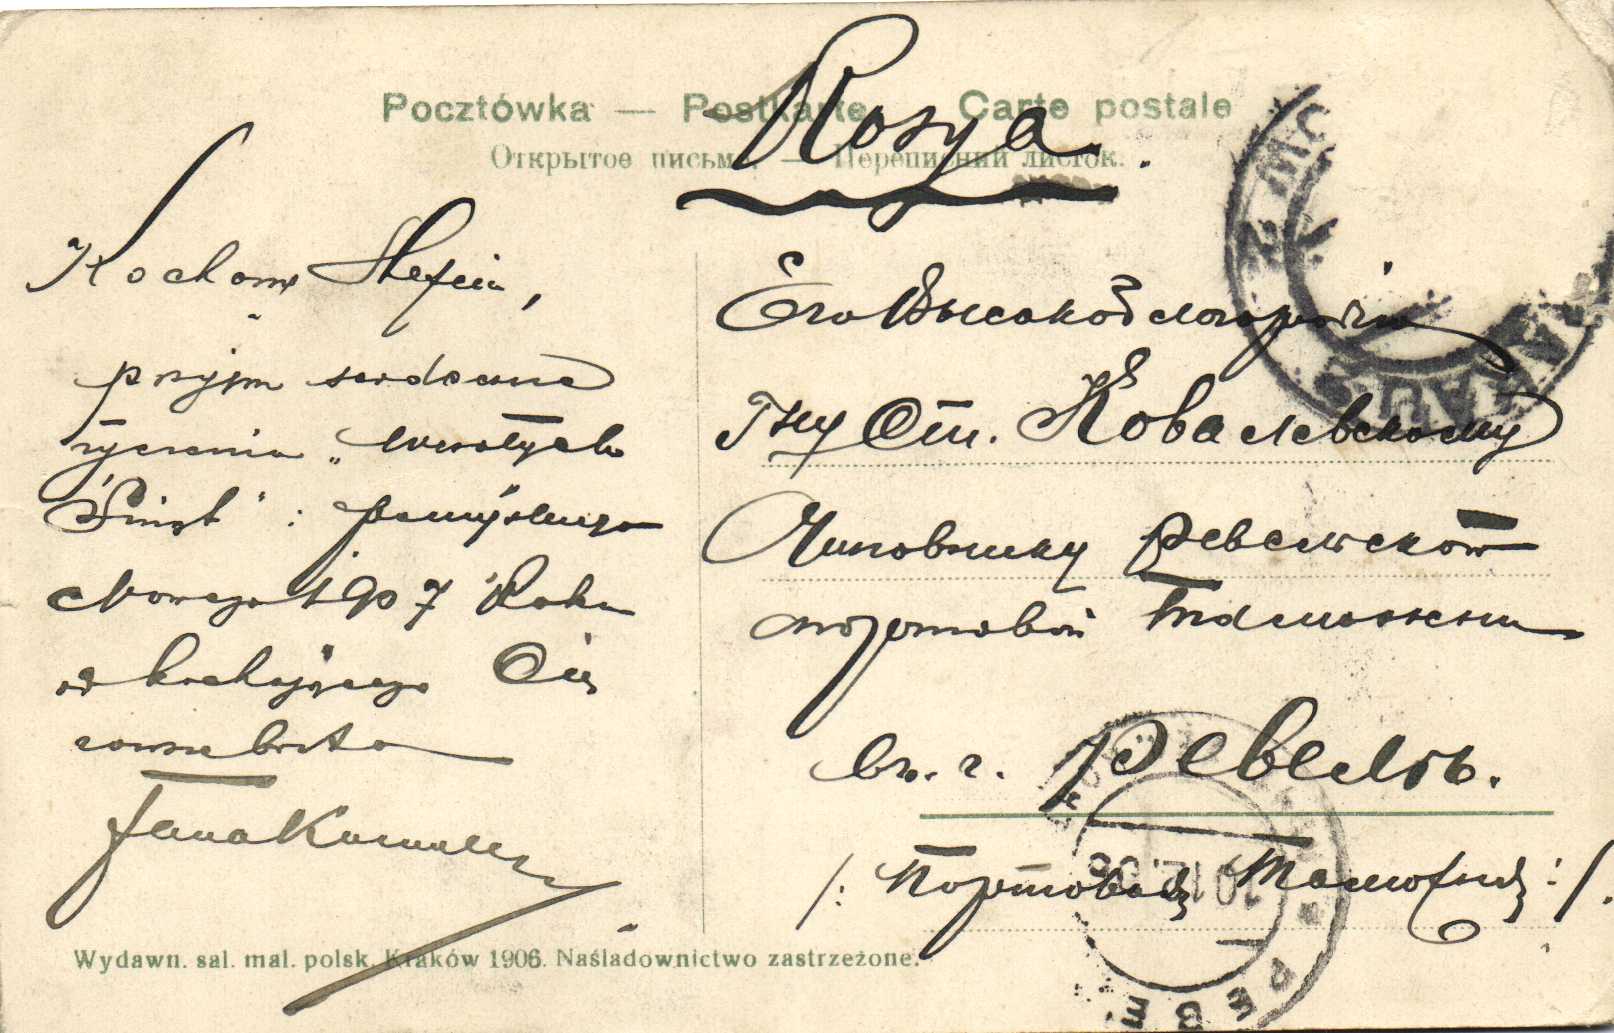 Pocztówka — Postkarte — Carte postale
Открытое письмо. — Переписний листок.
Rosya.
Kochany Stefciu,
przyjm serdeczne
życzenia „Wesołych
Świąt" i pomyślnego
Nowego 1907 Roku
od kochającego Cię
zawsze brata
Его Высокоблагородію
Гну Ст. Ковалевскому
Чиновнику Ревельской
портовой Таможни
въ г. Ревелѣ.
/: Портовая Таможня :/.
Wydawn. sal. mal. polsk. Kraków 1906. Naśladownictwo zastrzeżone.